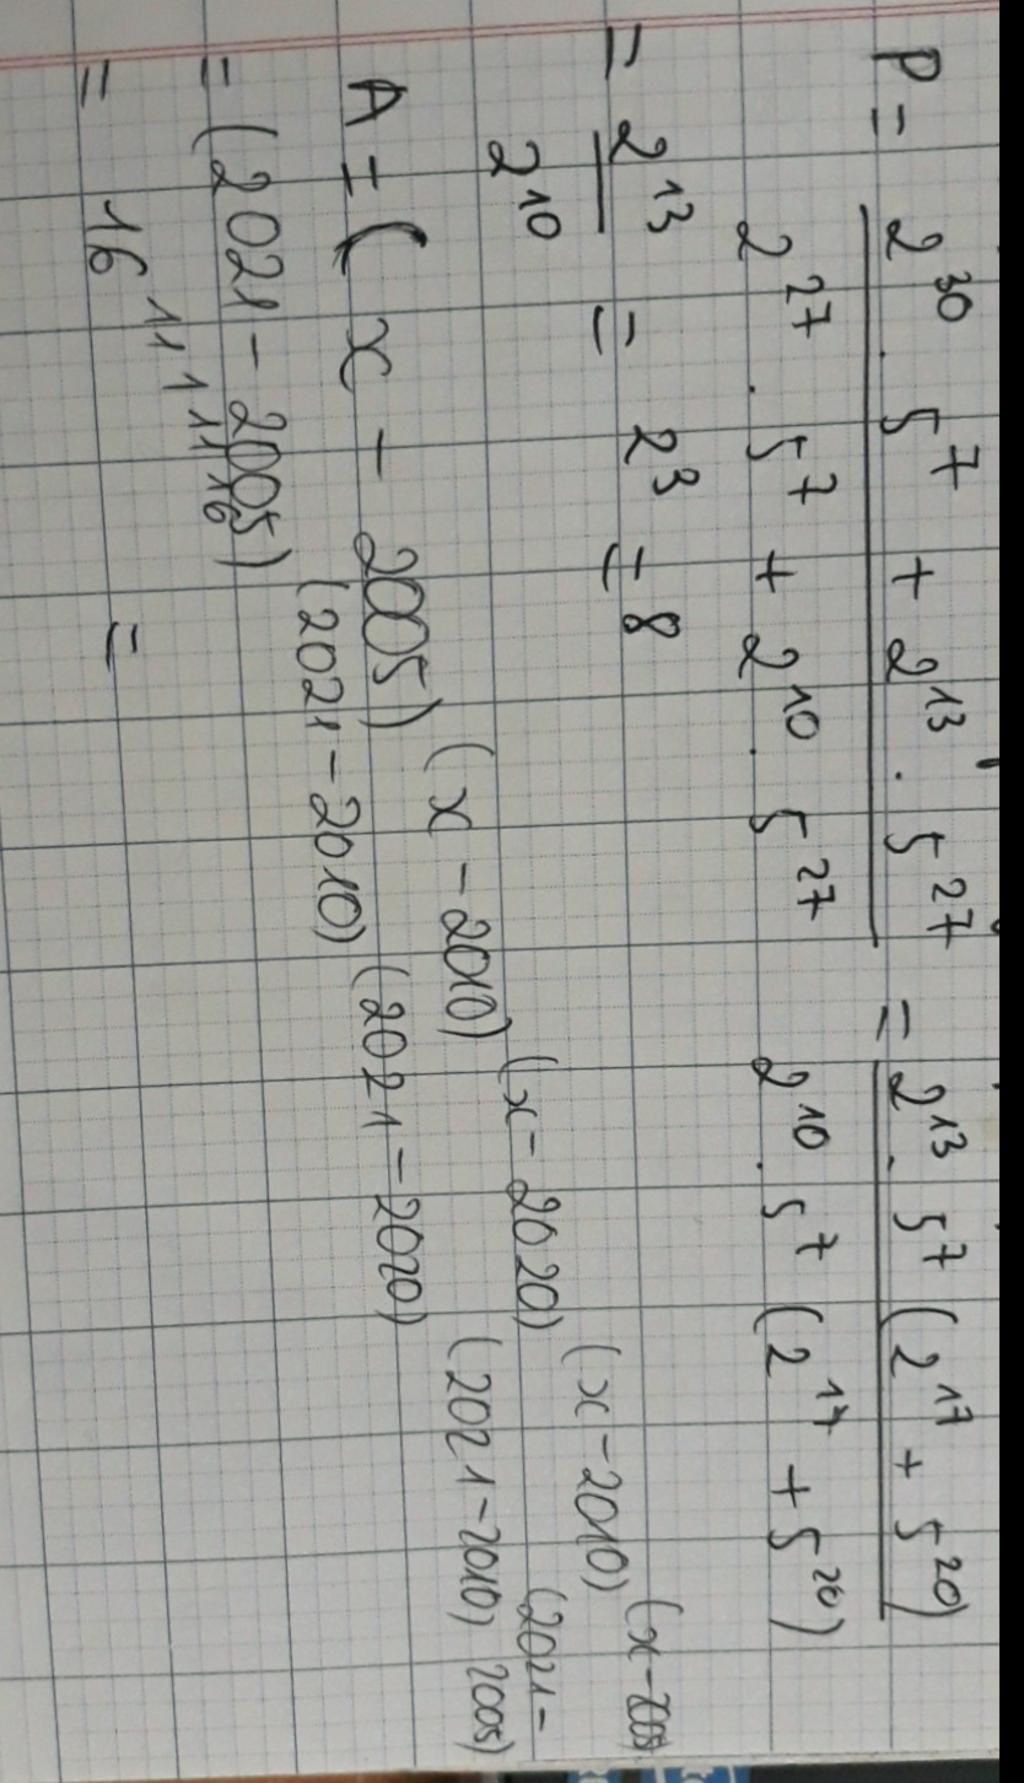 P = \frac{2^{30} . 5^7 + 2^{13} . 5^{27}}{2^{27} . 5^7 + 2^{10} . 5^{27}} = \frac{2^{13} . 5^7 (2^{17} + 5^{20})}{2^{10} . 5^7 (2^{17} + 5^{20})}
= \frac{2^{13}}{2^{10}} = 2^3 = 8
A = (x - 2005)^{(x - 2010)^{(x - 2020)^{(x - 2010)^{(x - 2005)}}}}
= (2021 - 2005)^{(2021 - 2010)^{(2021 - 2020)^{(2021 - 2010)^{(2021 - 2005)}}}}
= 16^{11^{1^{11^{16}}}} =